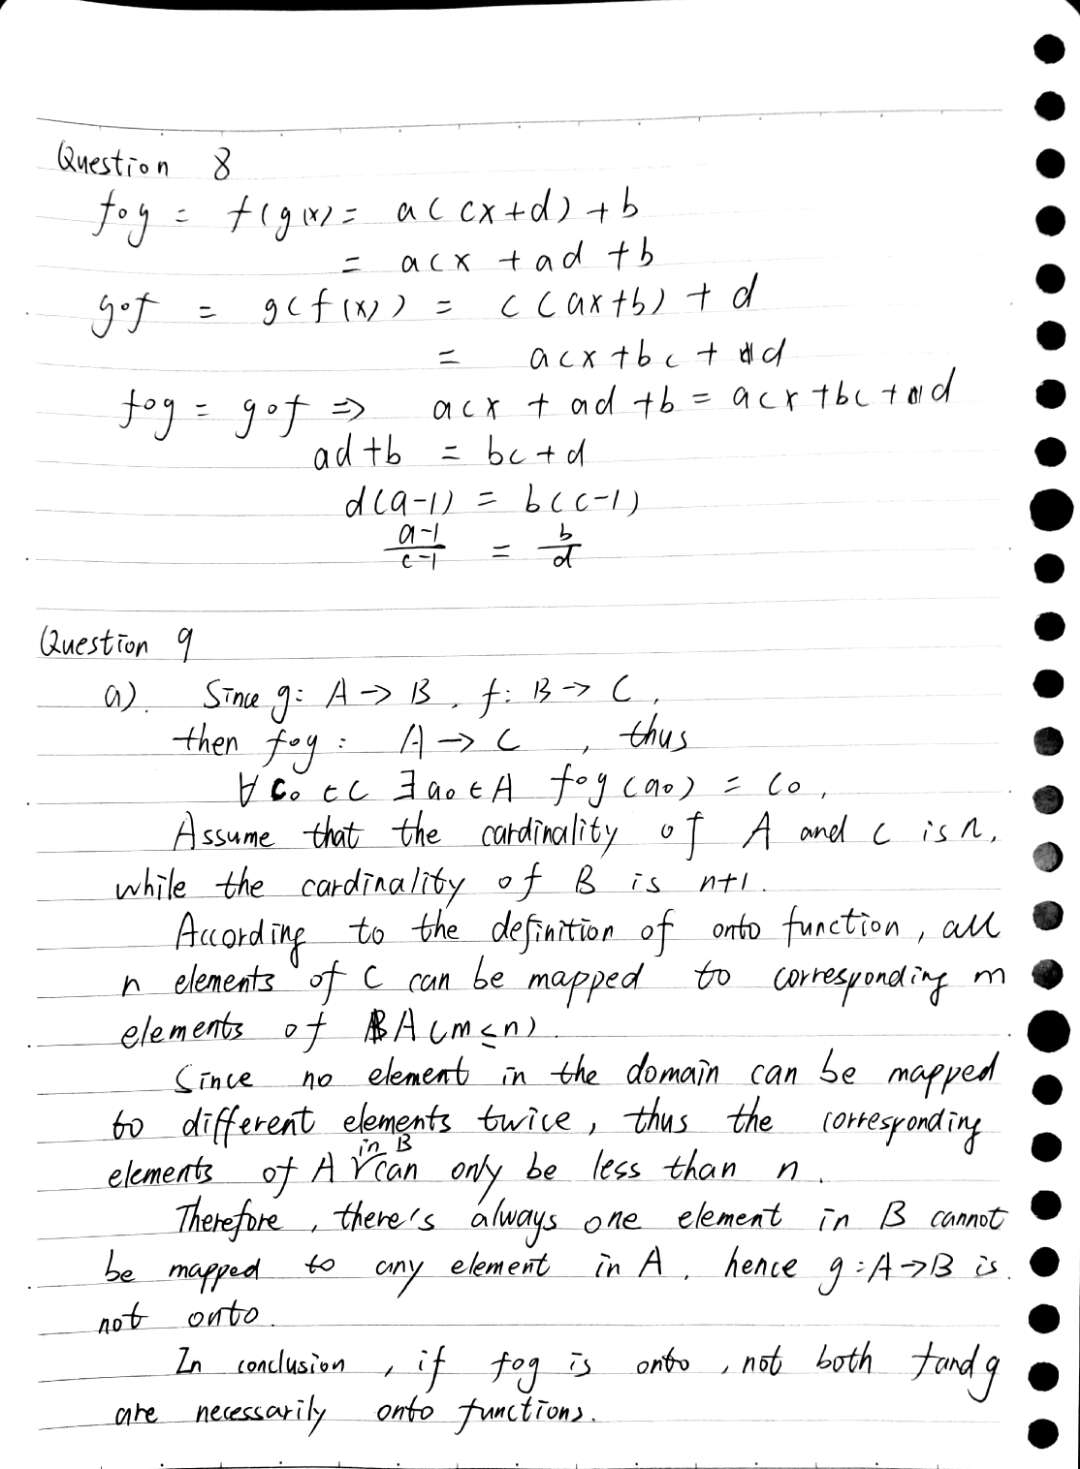 Question 8
fog = f(g(x) = a(cx+d)+b
= acx +ad +b
gof = g(f(x)) = c(ax+b) + d
= acx +bc + d
fog = gof ⇒ acx + ad +b = acx +bc + d
ad +b = bc +d
d(a-1) = b(c-1)
a-1/c-1 = b/d
Question 9
a). Since g: A → B, f: B → C,
then fog : A → C , thus
∀ c₀ ∈ C ∃ a₀ ∈ A fog (a₀) = c₀,
Assume that the cardinality of A and C is n,
while the cardinality of B is n+1.
According to the definition of onto function, all
n elements of C can be mapped to corresponding m
elements of A (m≤n).
Since no element in the domain can be mapped
to different elements twice, thus the corresponding
elements of A in B can only be less than n.
Therefore, there's always one element in B cannot
be mapped to any element in A, hence g: A→B is
not onto.
In conclusion, if fog is onto, not both f and g
are necessarily onto functions.